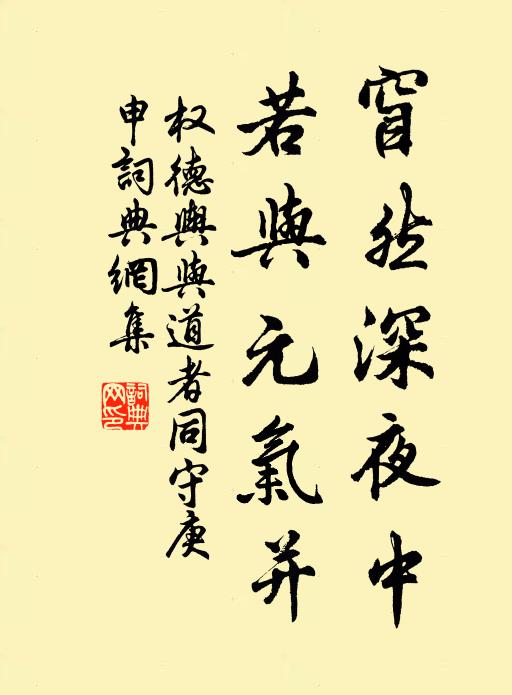 窅然深夜中
若與元氣并
权德輿與道者同守庚
申詞典網集
詞典
网印